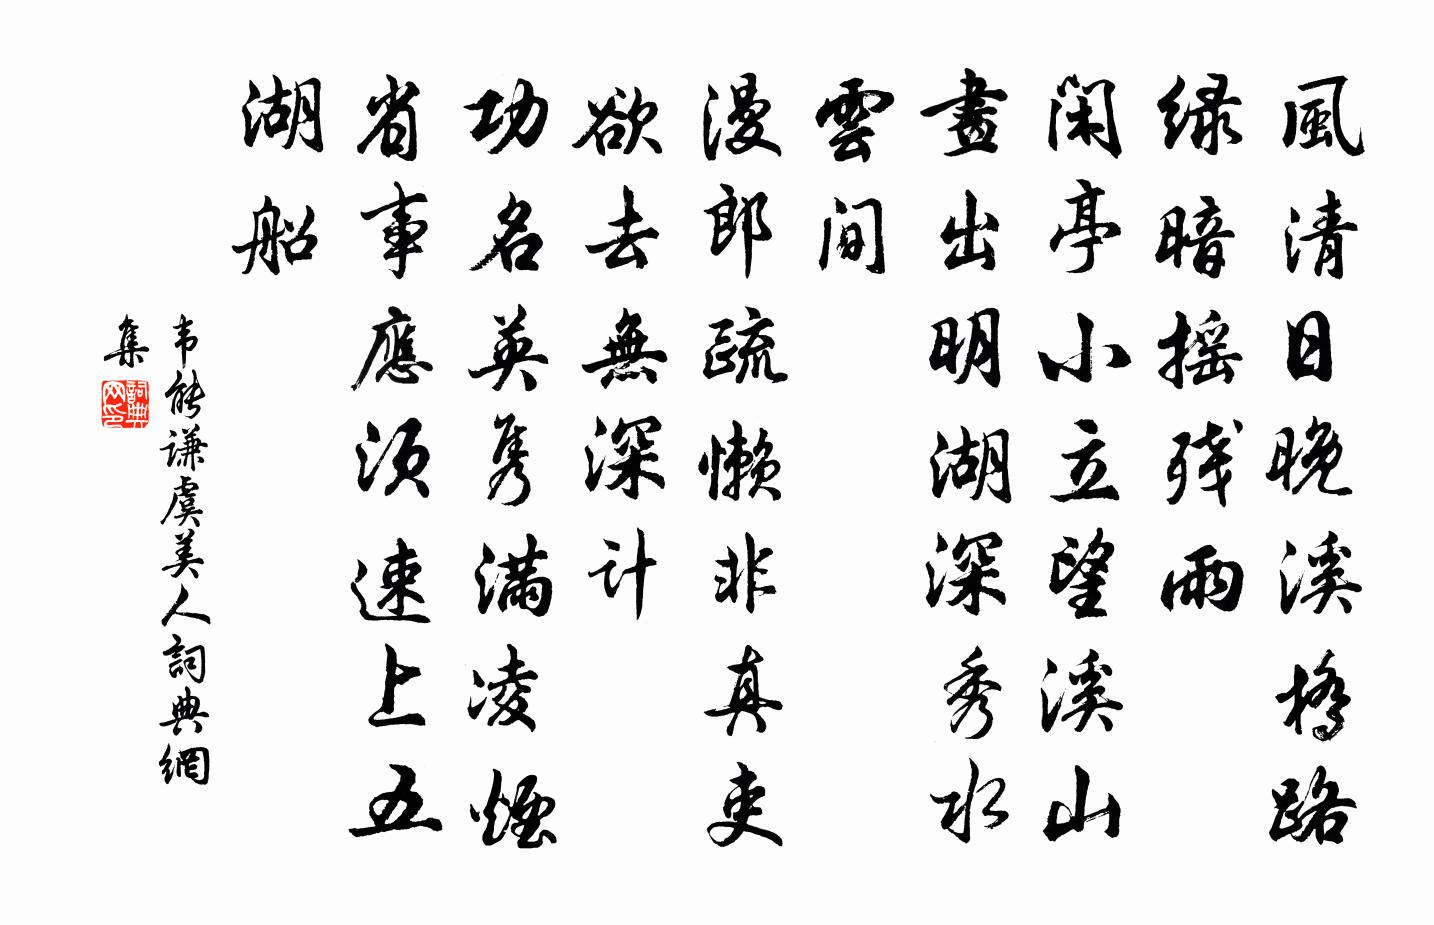 風清日晚溪橋路
緑暗摇残雨
閑亭小立望溪山
畫出明湖深秀水
雲間
漫郎疏懶非真吏
欲去無深計
功名英隽满凌煙
省事應須速上五
湖船
韦能谦虞美人詞典網
集
詞典
网印